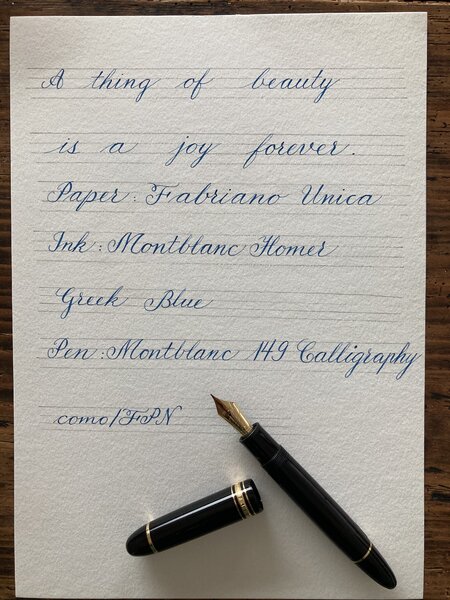 A thing of beauty
is a joy forever.
Paper: Fabriano Unica
Ink: Montblanc Homer
Greek Blue
Pen: Montblanc 149 Calligraphy
como/FPN